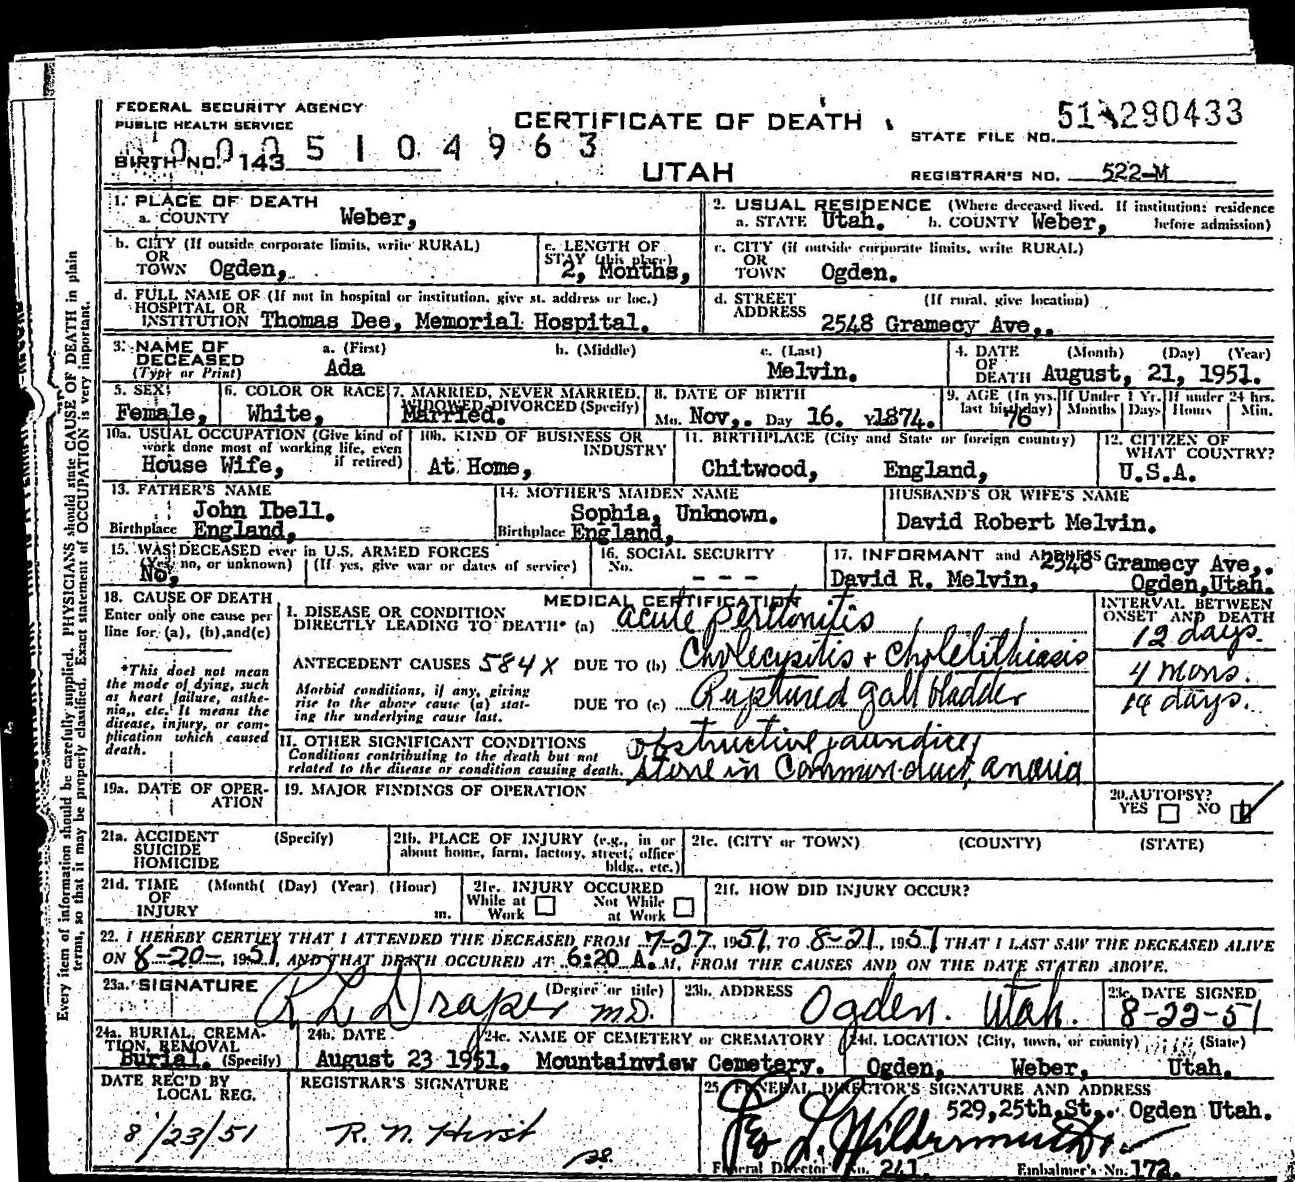 FEDERAL SECURITY AGENCY
PUBLIC HEALTH SERVICE
CERTIFICATE OF DEATH
UTAH
0005104963
BIRTH NO. 143
STATE FILE NO. 51 290433
REGISTRAR'S NO. 522-M
1. PLACE OF DEATH
a. COUNTY Weber,
2. USUAL RESIDENCE (Where deceased lived. If institution: residence before admission)
a. STATE Utah. b. COUNTY Weber,
b. CITY (If outside corporate limits, write RURAL)
OR
TOWN Ogden,
c. LENGTH OF
STAY (this place)
2, Months,
c. CITY (if outside corporate limits, write RURAL)
OR
TOWN Ogden.
d. FULL NAME OF (If not in hospital or institution, give st. address or loc.)
HOSPITAL OR
INSTITUTION Thomas Dee, Memorial Hospital.
d. STREET (If rural, give location)
ADDRESS
2548 Gramecy Ave,.
3. NAME OF
DECEASED
(Type or Print)
a. (First) b. (Middle) c. (Last)
Ada Melvin.
4. DATE (Month) (Day) (Year)
OF
DEATH August, 21, 1951.
5. SEX
Female,
6. COLOR OR RACE
White,
7. MARRIED, NEVER MARRIED,
WIDOWED, DIVORCED (Specify)
Married.
8. DATE OF BIRTH
Mo. Nov,. Day 16. Y 1874.
9. AGE (In yrs. last birthday) If Under 1 Yr. If under 24 hrs.
76 Months Days Hours Min.
10a. USUAL OCCUPATION (Give kind of
work done most of working life, even
if retired)
House Wife,
10b. KIND OF BUSINESS OR
INDUSTRY
At Home,
11. BIRTHPLACE (City and State or foreign country)
Chitwood, England,
12. CITIZEN OF
WHAT COUNTRY?
U.S.A.
13. FATHER'S NAME
John Ibell.
Birthplace England,
14. MOTHER'S MAIDEN NAME
Sophia, Unknown.
Birthplace England,
HUSBAND'S OR WIFE'S NAME
David Robert Melvin.
15. WAS DECEASED ever in U.S. ARMED FORCES
(Yes, no, or unknown) (If yes, give war or dates of service)
No,
16. SOCIAL SECURITY
No.
- - -
17. INFORMANT and ADDRESS 2548 Gramecy Ave,.
David R. Melvin, Ogden, Utah.
18. CAUSE OF DEATH
Enter only one cause per
line for (a), (b), and (c)
*This does not mean
the mode of dying, such
as heart failure, asthe-
nia, etc. It means the
disease, injury, or com-
plication which caused
death.
MEDICAL CERTIFICATION
INTERVAL BETWEEN
ONSET AND DEATH
I. DISEASE OR CONDITION
DIRECTLY LEADING TO DEATH* (a) acute peritonitis
12 days.
ANTECEDENT CAUSES 584X DUE TO (b) Cholecysitis + Cholelithiasis
4 mons.
Morbid conditions, if any, giving
rise to the above cause (a) stat-
ing the underlying cause last.
DUE TO (c) Ruptured gall bladder
14 days.
II. OTHER SIGNIFICANT CONDITIONS
Conditions contributing to the death but not
related to the disease or condition causing death.
obstructive jaundice,
stone in common duct,
19a. DATE OF OPER-
ATION
19. MAJOR FINDINGS OF OPERATION
20. AUTOPSY?
YES NO
21a. ACCIDENT (Specify)
SUICIDE
HOMICIDE
21b. PLACE OF INJURY (e.g., in or
about home, farm, factory, street, office
bldg., etc.)
21c. (CITY or TOWN) (COUNTY) (STATE)
21d. TIME (Month( (Day) (Year) (Hour)
OF
INJURY m.
21e. INJURY OCCURED
While at Not While
Work at Work
21f. HOW DID INJURY OCCUR?
22. I HEREBY CERTIFY THAT I ATTENDED THE DECEASED FROM 7-27, 1951, TO 8-21, 1951 THAT I LAST SAW THE DECEASED ALIVE
ON 8-20-, 1951, AND THAT DEATH OCCURED AT 6:20 A.M, FROM THE CAUSES AND ON THE DATE STATED ABOVE.
23a. SIGNATURE (Degree or title)
R L Draper M.D.
23b. ADDRESS
Ogden. Utah.
23c. DATE SIGNED
8-22-51
24a. BURIAL, CREMA-
TION, REMOVAL
Burial. (Specify)
24b. DATE
August 23 1951.
24c. NAME OF CEMETERY or CREMATORY
Mountainview Cemetery.
24d. LOCATION (City, town, or county) (State)
Ogden, Weber, Utah.
DATE REC'D BY
LOCAL REG.
8/23/51
REGISTRAR'S SIGNATURE
R. N. Hirst
25. FUNERAL DIRECTOR'S SIGNATURE AND ADDRESS
529, 25th, St,. Ogden Utah.
Funeral Director's No. 241. Embalmer's No. 172.
Every item of information should be carefully supplied. PHYSICIANS should state CAUSE OF DEATH in plain
terms, so that it may be properly classified. Exact statement of OCCUPATION is very important.